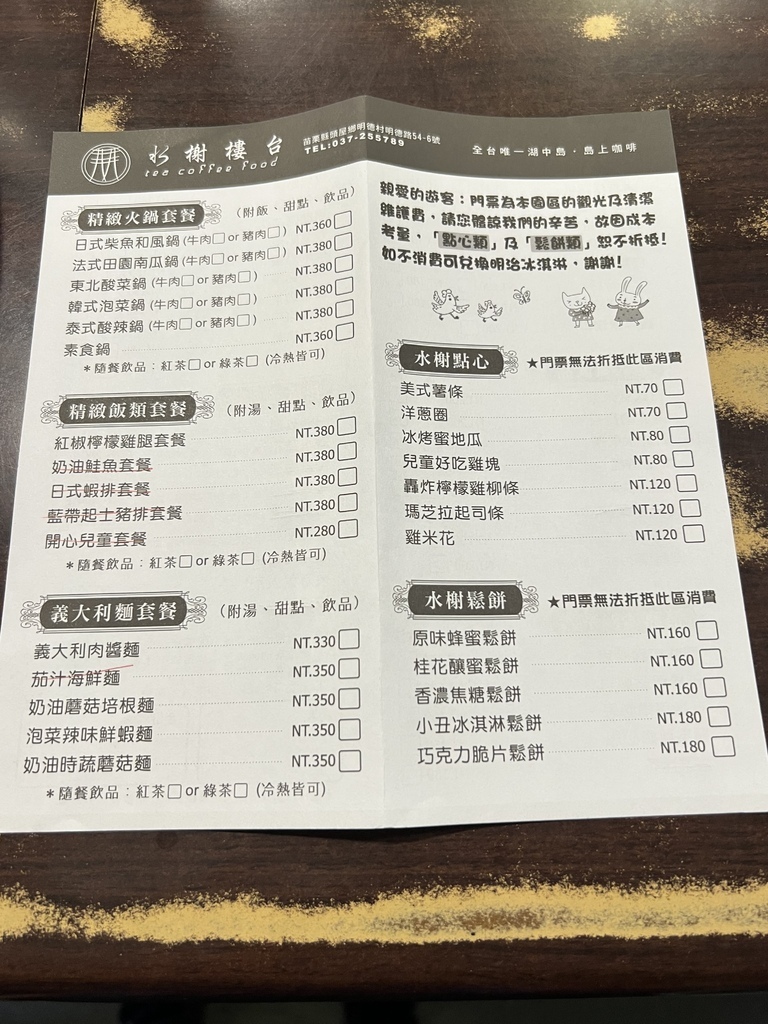 水榭樓台
tea coffee food
苗栗縣頭屋鄉明德村明德路54-6號
TEL:037-255789
全台唯一湖中島．島上咖啡
精緻火鍋套餐 （附飯、甜點、飲品）
日式柴魚和風鍋 (牛肉□ or 豬肉□) NT.360 □
法式田園南瓜鍋 (牛肉□ or 豬肉□) NT.380 □
東北酸菜鍋 (牛肉□ or 豬肉□) NT.380 □
韓式泡菜鍋 (牛肉□ or 豬肉□) NT.380 □
泰式酸辣鍋 (牛肉□ or 豬肉□) NT.380 □
素食鍋 NT.360 □
＊隨餐飲品：紅茶□ or 綠茶□ (冷熱皆可)
精緻飯類套餐 （附湯、甜點、飲品）
紅椒檸檬雞腿套餐 NT.380 □
奶油鮭魚套餐 NT.380 □
日式蝦排套餐 NT.380 □
藍帶起士豬排套餐 NT.380 □
開心兒童套餐 NT.280 □
＊隨餐飲品：紅茶□ or 綠茶□ (冷熱皆可)
義大利麵套餐 （附湯、甜點、飲品）
義大利肉醬麵 NT.330 □
茄汁海鮮麵 NT.350 □
奶油蘑菇培根麵 NT.350 □
泡菜辣味鮮蝦麵 NT.350 □
奶油時蔬蘑菇麵 NT.350 □
＊隨餐飲品：紅茶□ or 綠茶□ (冷熱皆可)
親愛的遊客：門票為本園區的觀光及清潔
維護費，請您體諒我們的辛苦，故因成本
考量，「點心類」及「鬆餅類」恕不折抵！
如不消費可兌換明治冰淇淋，謝謝！
水榭點心 ★門票無法折抵此區消費
美式薯條 NT.70 □
洋蔥圈 NT.70 □
冰烤蜜地瓜 NT.80 □
兒童好吃雞塊 NT.80 □
轟炸檸檬雞柳條 NT.120 □
瑪芝拉起司條 NT.120 □
雞米花 NT.120 □
水榭鬆餅 ★門票無法折抵此區消費
原味蜂蜜鬆餅 NT.160 □
桂花釀蜜鬆餅 NT.160 □
香濃焦糖鬆餅 NT.160 □
小丑冰淇淋鬆餅 NT.180 □
巧克力脆片鬆餅 NT.180 □